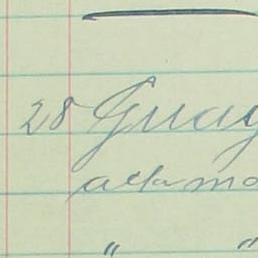 28 Guay
alla mo
" "